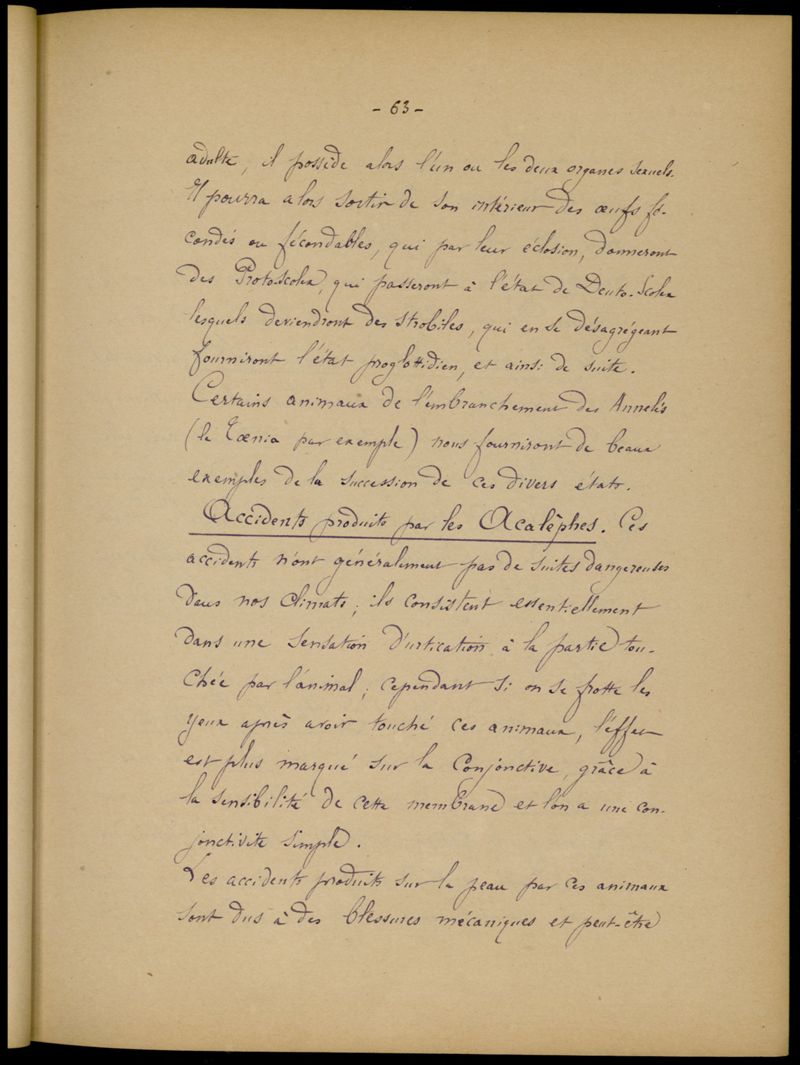 - 63 -
adulte, il possède alors l'un ou les deux organes sexuels.
Il pourra alors sortir de son intérieur des œufs fé-
condés ou fécondables, qui par leur éclosion, donneront
des Proto-Scolex, qui passeront à l'état de Deuto-Scolex
lesquels deviendront des Strobiles, qui en se désagrégeant
fourniront l'état proglottidien, et ainsi de suite.
Certains animaux de l'embranchement des Annelés
(le Tœnia par exemple) nous fourniront de beaux
exemples de la succession de ces divers états.
Accidents produits par les Acalèphes. Ces
accidents n'ont généralement pas de suites dangereuses
dans nos climats; ils consistent essentiellement
dans une sensation d'urtication à la partie tou-
chée par l'animal; cependant si on se frotte les
yeux après avoir touché ces animaux, l'effet
est plus marqué sur la conjonctive, grâce à
la sensibilité de cette membrane et l'on a une con-
jonctivite simple.
Les accidents produits sur la peau par ces animaux
sont dus à des blessures mécaniques et peut-être